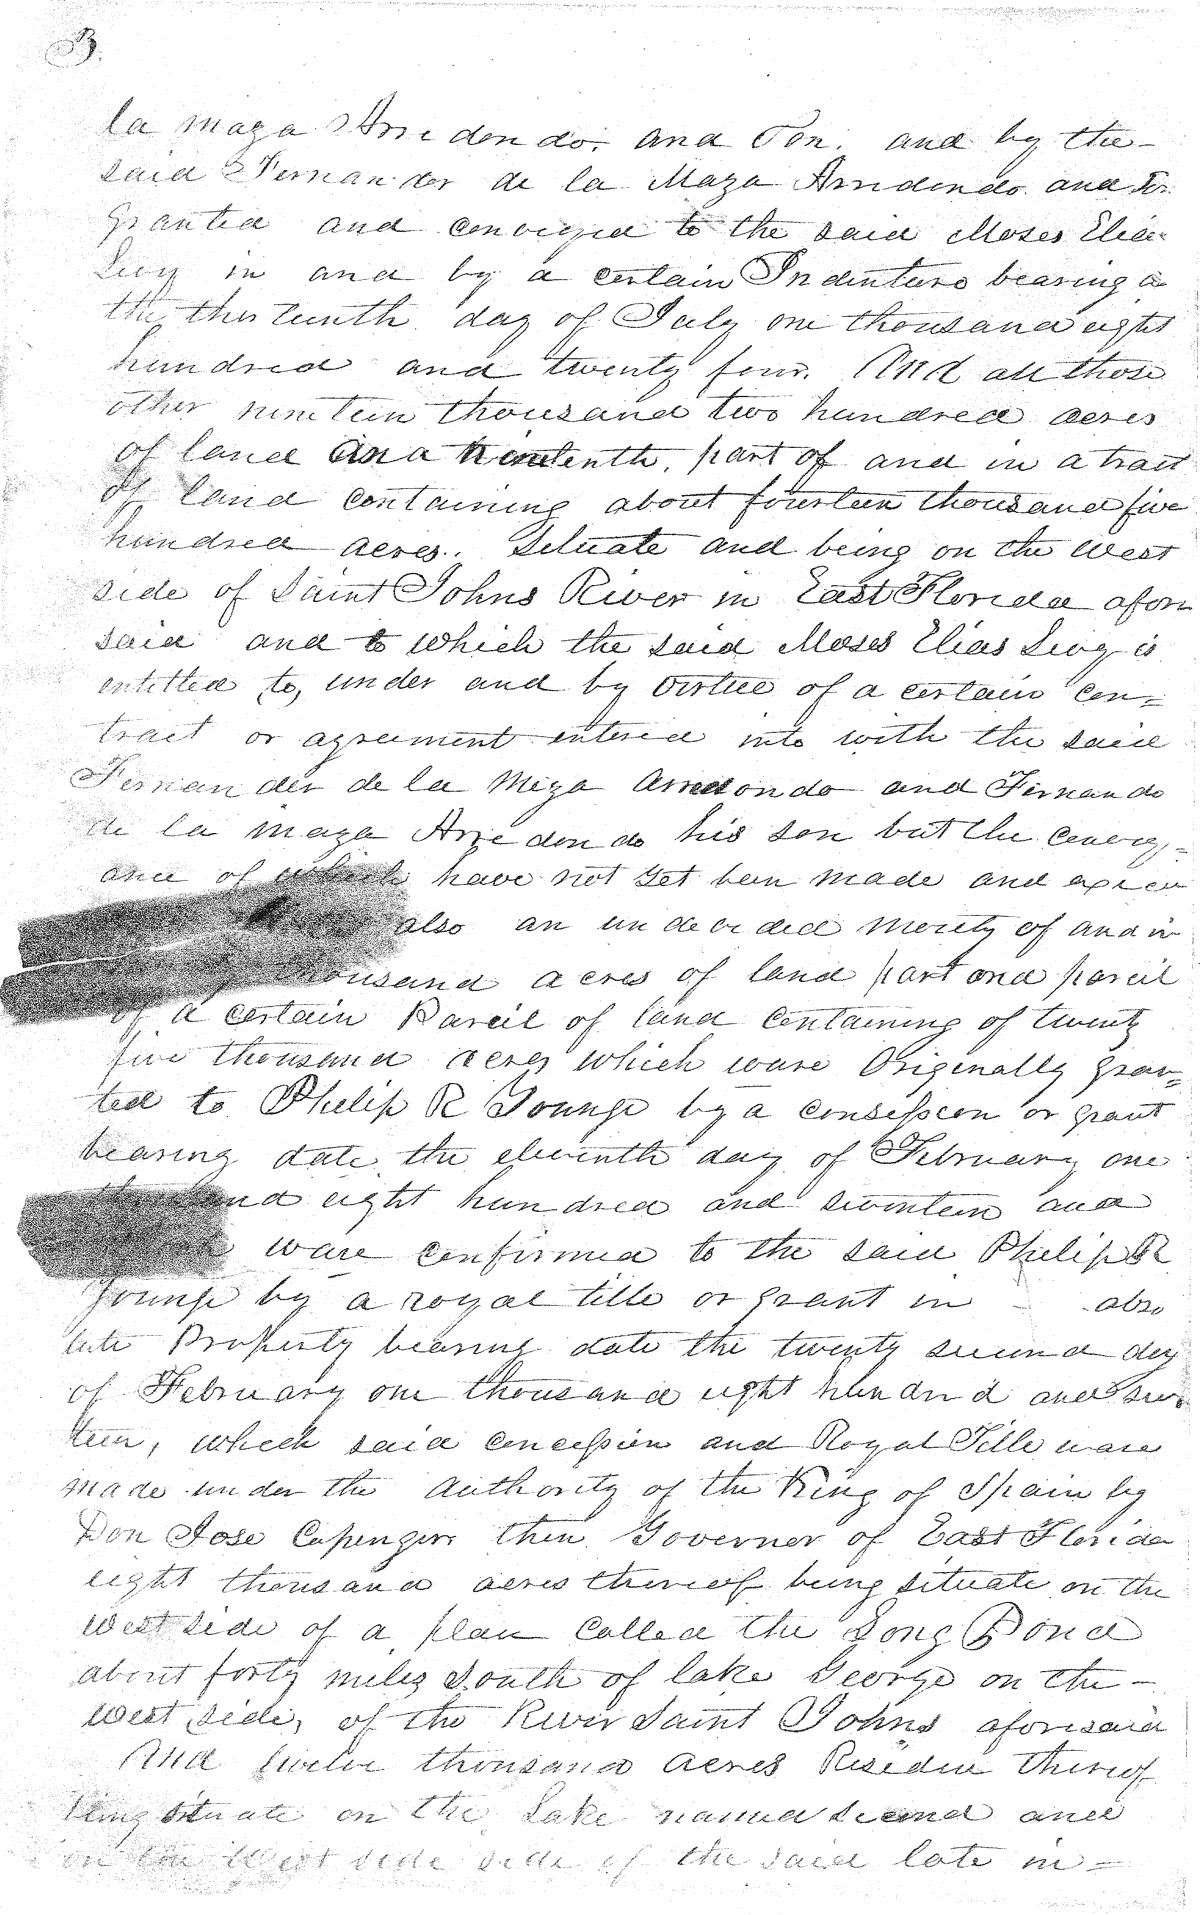 3.
la maza Arredondo. and Son. and by the -
said Fernander de la Maza Arredondo and Son
granted and conveyed to the said Moses Elias
Levy in and by a certain Indenture bearing a
the thirteenth day of July one thousand eight
hundred and twenty four. And all those
other nineteen thousand two hundred acres
of land part of and in a tract
of land containing about fourteen thousand five
hundred acres. Situate and being on the West
side of Saint Johns River in East Florida afore
said and to which the said Moses Elias Levy is
entitled to, under and by virtue of a certain con=
tract or agreement entered into with the said
Fernander de la Meza Arredondo and Fernando
de la maza Arredondo his son but the convey=
ance of which have not yet been made and execu
also an undevided moiety of and in
thousand acres of land part and parcil
of a certain Parcil of land containing of twenty
five thousand acres which ware Originally gran=
ted to Philip R Younge by a consession or grant
bearing date the eleventh day of February one
thousand eight hundred and seventeen and
ware confirmed to the said Philip R
Younge by a royal title or grant in - abso
lute Property bearing date the twenty second day
of February one thousand eight hundrd and seven
teen, which said concession and Royal Title ware
made under the Authority of the King of Spain by
Don Jose Copenger then Governer of East Florida
eight thousand acres thereof being situate on the
west side of a plan called the Long Pond
about forty miles South of lake George on the -
west side, of the River Saint Johns aforesaid
And twelve thousand acres Residue thereof
being situate on the Lake named second and
on the West side side of the said late in =